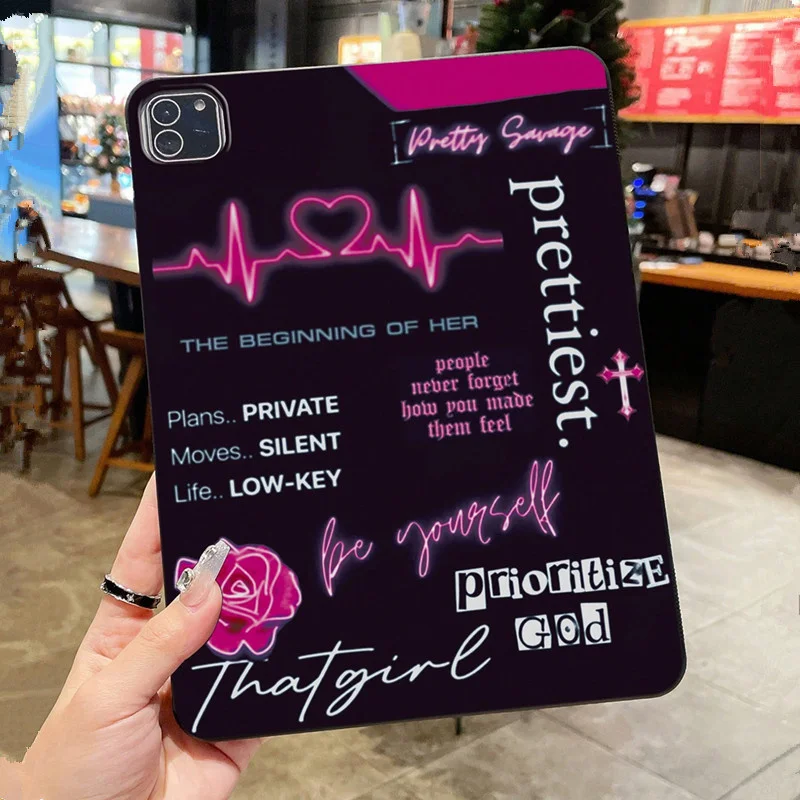 Pretty Savage
prettiest.
THE BEGINNING OF HER
people
never forget
how you made
them feel
Plans.. PRIVATE
Moves.. SILENT
Life.. LOW-KEY
be yourself
PRiORitizE
GOd
Thatgirl